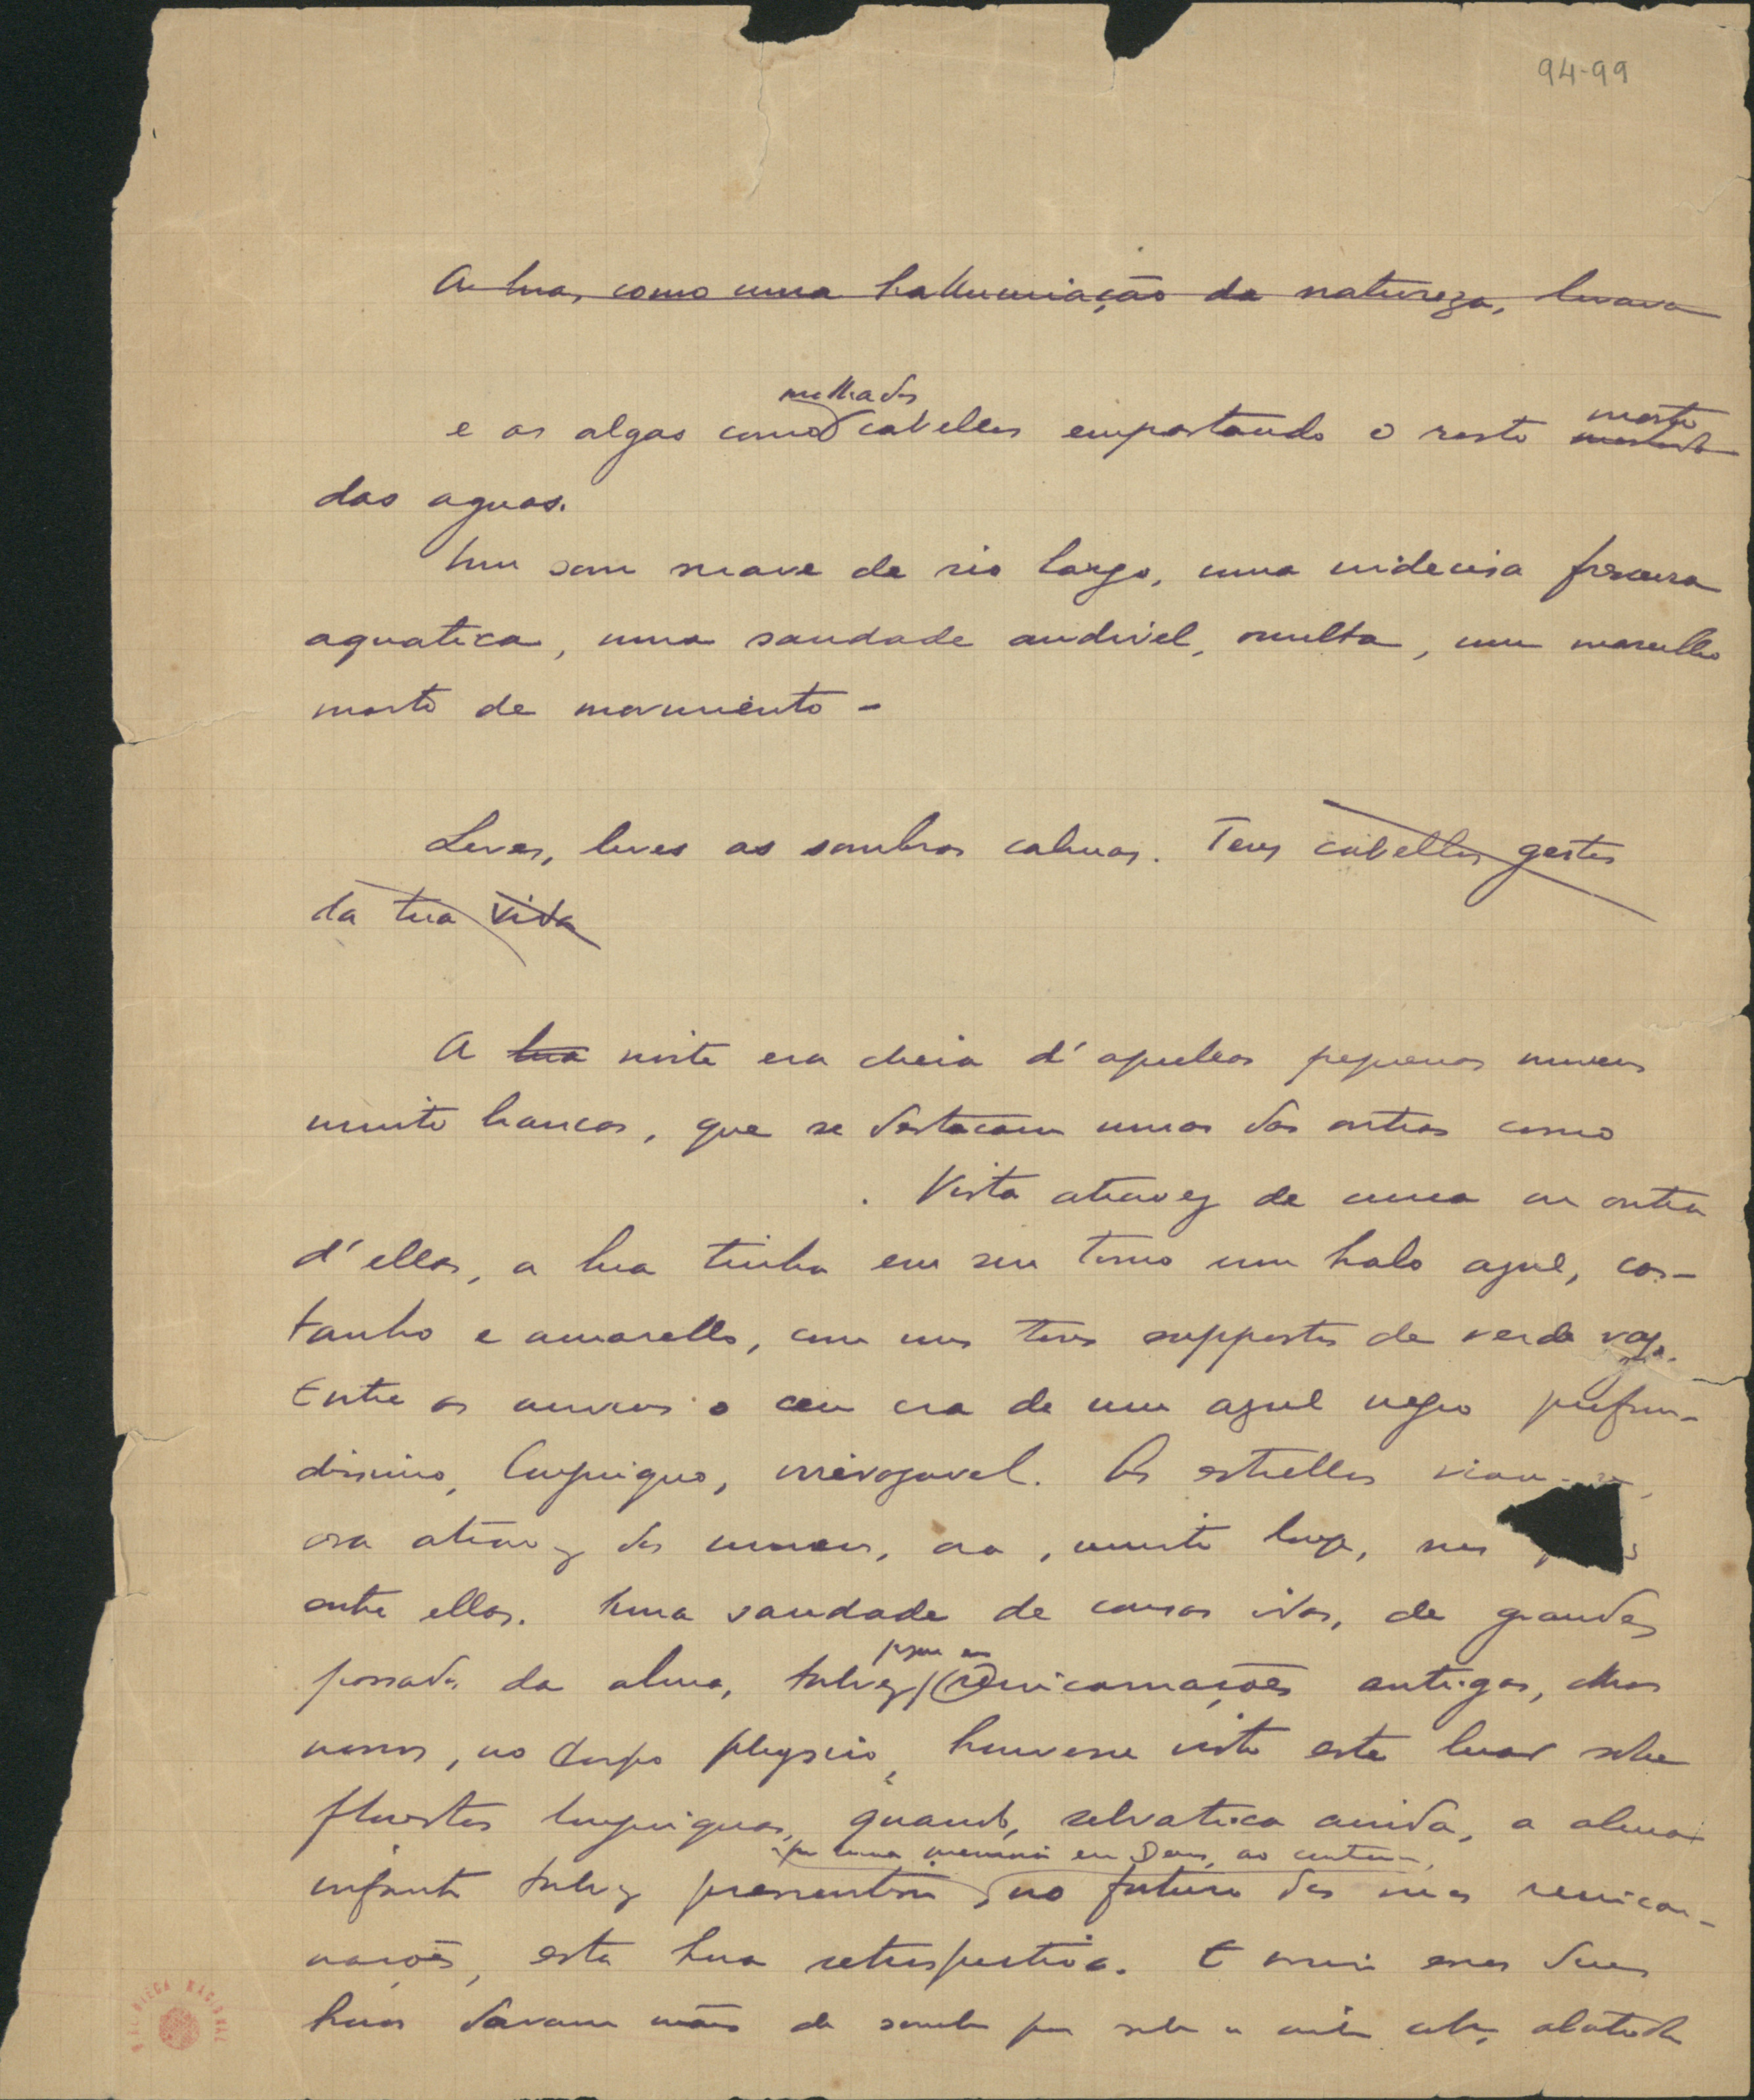 94-99
A lua, como uma hallucinação da natureza, levava
molhados
e as algas como cabellos empastando o rosto morto
das aguas.
Um som suave de rio largo, uma indecisa frescura
aquatica, uma saudade audivel, occulta, um marulho
morto de movimento -
Leves, leves as sombras calmas. Teus cabellos gestos
da tua vida
A lua noite era cheia d'aquellas pequenas nuvens
muito brancas, que se destacam umas das outras como
. Vista atravez de uma ou outra
d'ellas, a lua tinha em seu torno um halo azul, cas-
tanho e amarello, com uns tons suppostos de verde vago.
Entre as nuvens o ceu era de um azul negro profun-
dissimo, longinquo, irrevogavel. As estrellas viam-se,
ora atravez das nuvens, ora, muito longe, nos
entre ellas. Uma saudade de cousas idas, de grandes
passados da alma, talvez porque em reincarnações antigas, olhos
nossos, no corpo physico, houvesse visto este luar sobre
florestas longinquas, quando, selvatica ainda, a alma
por uma memoria em Deus, ao contrario,
infante talvez presentira, no futuro das suas reincar-
nações, esta lua retrospectiva. E assim essas duas
luas davam mãos de sombra por sobre a minha cabeça abatida
BIBLIOTECA NACIONAL